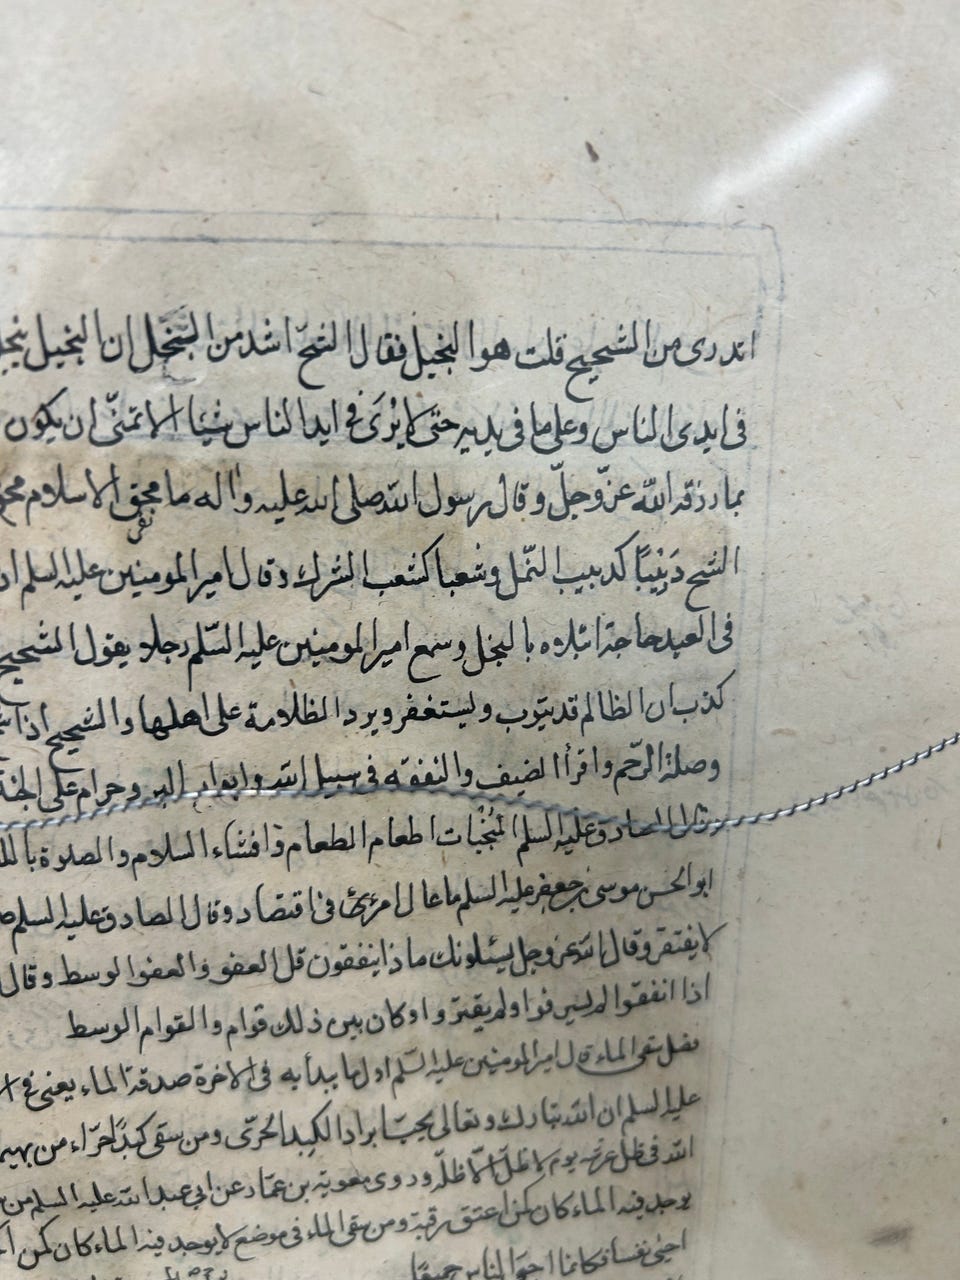 اتدرى من الشحيح قلت هو البخيل فقال الشحّ اشد من البخل ان البخيل يبخل
فى ايدى الناس وعلى ما فى يديه حتى لا يرى فى ايد الناس شيئا الا تمنّى ان يكون
بما رزقه الله عزّ وجلّ وقال رسول الله صلى الله عليه واله ما محق الاسلام محق
الشح دبيبًا كدبيب النمل وشعبا كشعب الشرك وقال امير المومنين عليه السلم
فى العبد حاجة ابتلاه بالبخل وسمع امير المومنين عليه السّلم رجلا يقول الشحيح
كذب ان الظالم قد يتوب وليستغفر ويرد الظلامة على اهلها والشحيح اذا
وصلة الرّحم واقرأ الضيف والنفقه فى سبيل الله وابواب البر وحرام على الجنة
وقال الصادق عليه السلم المنجيات اطعام الطعام وافشاء السلام والصلوة
ابو الحسن موسى بن جعفر عليه السلم ما عال امرئ فى اقتصاد وقال الصادق عليه السلم
لا يفتقر وقال الله عز وجل يسئلونك ماذا ينفقون قل العفو والعفو الوسط وقال
اذا انفقوا لم يسرفوا ولم يقتروا وكان بين ذلك قوام والقوام الوسط
فضل سقى الماء قال امير المومنين عليه السّلم اول ما يبدأ به فى الاخرة صدقة الماء يعنى فى
عليه السلم ان الله تبارك وتعالى يحبّ ابراد الكبد الحرّى ومن سقى كبدًا حرّاء من
الله فى ظل عرشه يوم لا ظلّ الّا ظلّه وروى معوية بن عمّار عن ابي عبد الله عليه السلم من
يوجد فيه الماء كان كمن اعتق رقبة ومن سقى الماء فى موضع لا يوجد فيه الماء كان كمن
احيى نفسا فكانما احيا الناس جميعًا